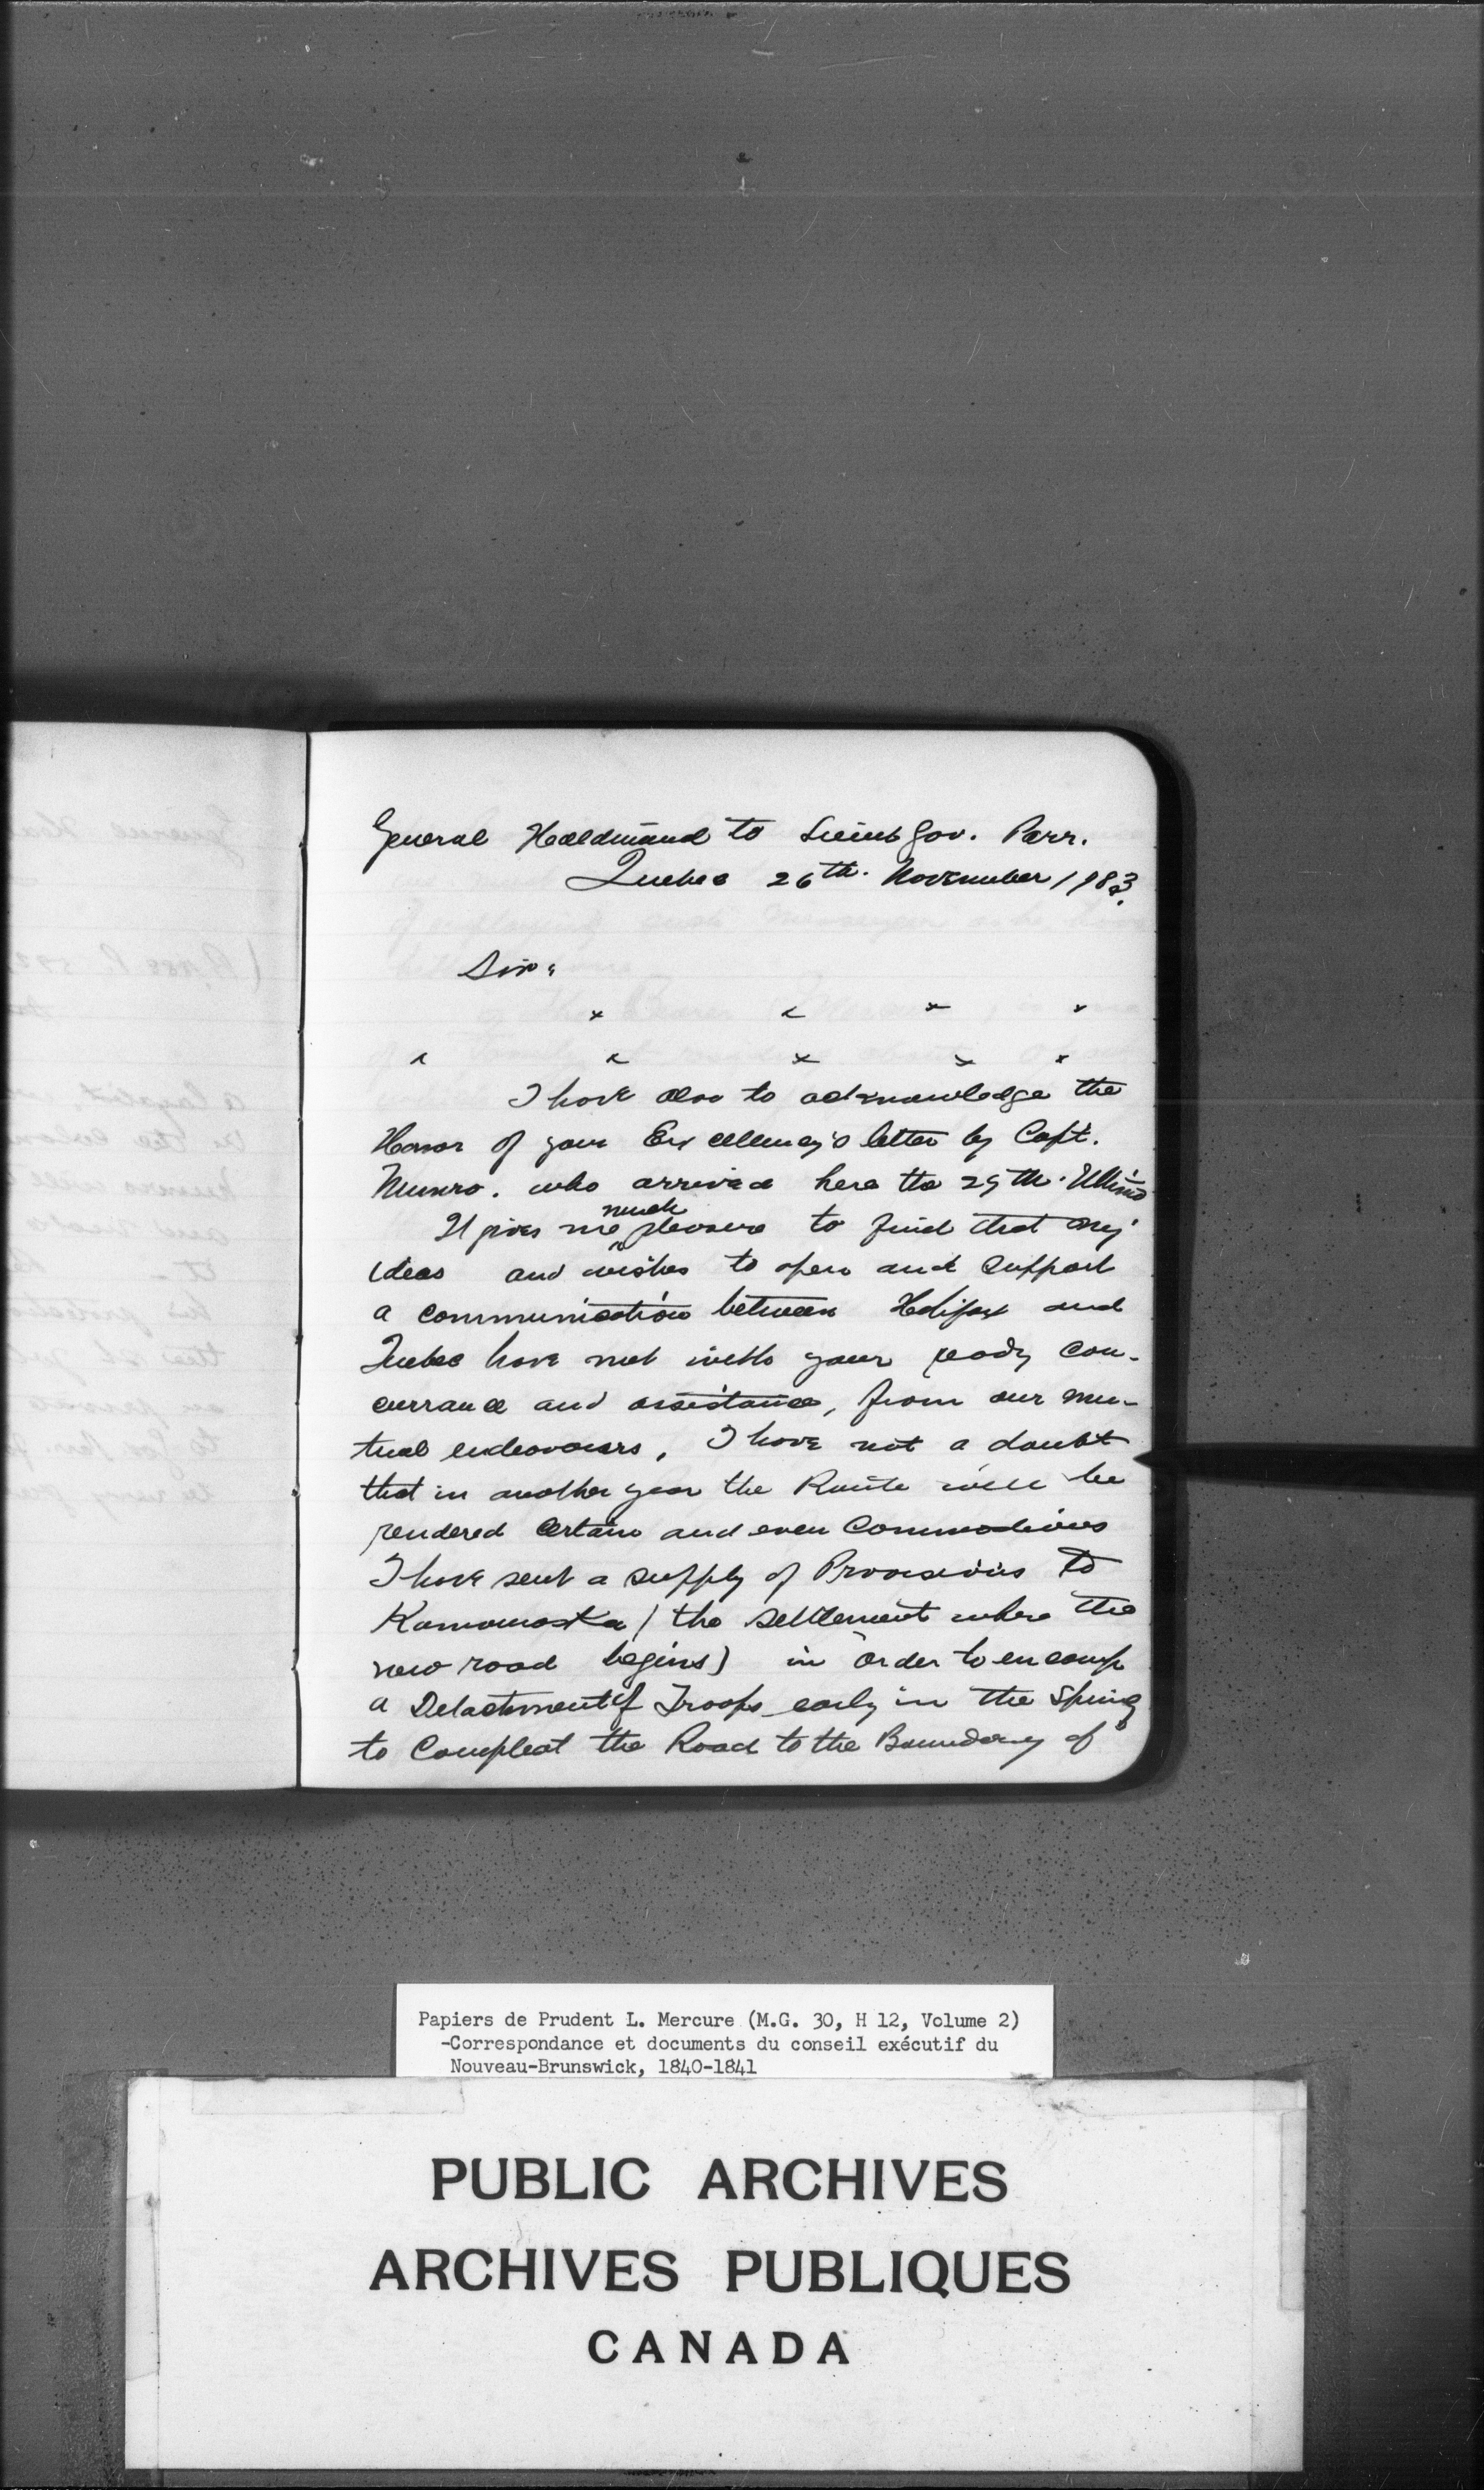 General Haldimand to Lieut Gov. Parr.
Quebec 26th. November 1783.
Sir:
x x x x
x x x x x
I have also to acknowledge the
Honor of your Excellency's letter by Capt.
Munro. who arrived here the 29th. Ultimo
It gives me much pleasure to find that my
ideas and wishes to open and support
a communication between Halifax and
Quebec have met with your ready con-
currance and assistance, from our mu-
tual endeavours, I have not a doubt
that in another year the Route will be
rendered certain and even Commodious
I have sent a supply of Provisions to
Kamouraska (the settlement where the
new road begins) in order to encamp
a Detachment of Troops early in the Spring
to Compleat the Road to the Boundary of
Papiers de Prudent L. Mercure (M.G. 30, H 12, Volume 2)
-Correspondance et documents du conseil exécutif du
Nouveau-Brunswick, 1840-1841
PUBLIC ARCHIVES
ARCHIVES PUBLIQUES
CANADA